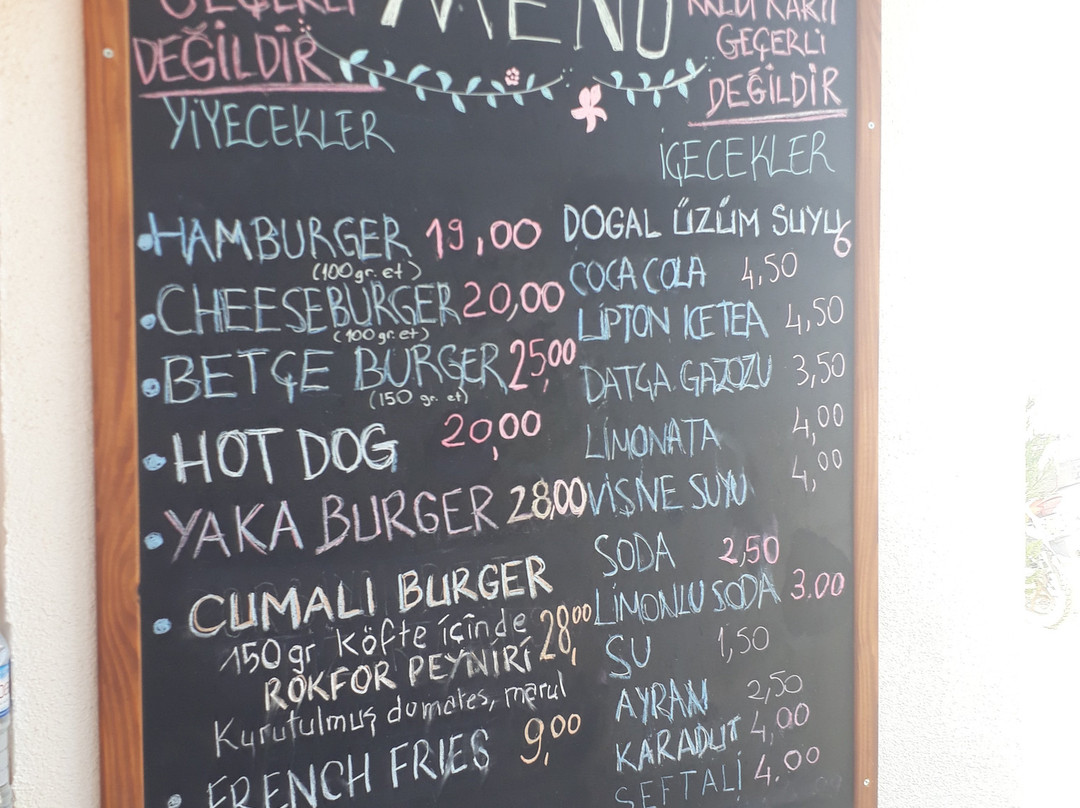 GEÇERLİ
DEĞİLDİR
MENÜ
KREDİ KARTI
GEÇERLİ
DEĞİLDİR
YİYECEKLER
HAMBURGER 19,00
(100 gr. et)
CHEESEBURGER 20,00
(100 gr. et)
BETÇE BURGER 25,00
(150 gr. et)
HOT DOG 20,00
YAKA BURGER 28,00
CUMALI BURGER
150 gr köfte içinde 28,00
ROKFOR PEYNİRİ
Kurutulmuş domates, marul
FRENCH FRIES 9,00
İÇECEKLER
DOGAL ÜZÜM SUYU 6
COCA COLA 4,50
LİPTON ICETEA 4,50
DATÇA GAZOZU 3,50
LİMONATA 4,00
VİŞNE SUYU 4,00
SODA 2,50
LİMONLU SODA 3.00
SU 1,50
AYRAN 2,50
KARADUT 4,00
ŞEFTALİ 4.00